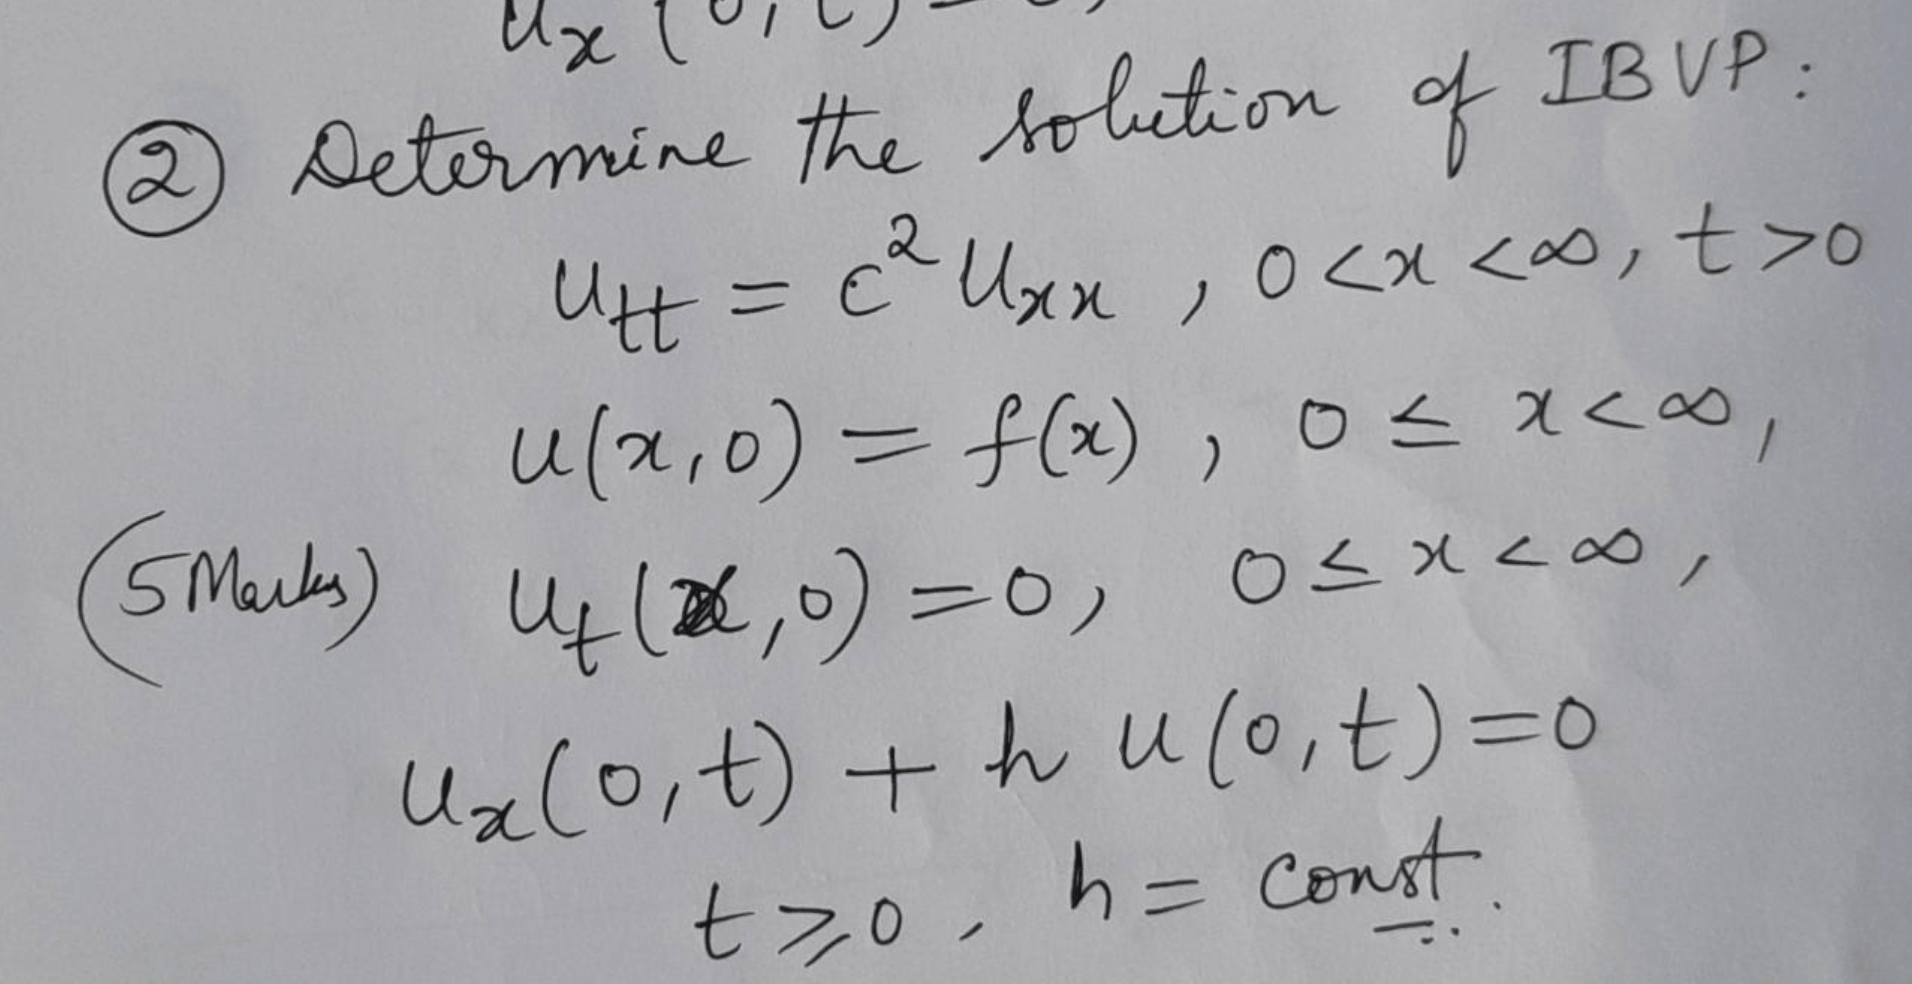 u_x (0, t) =
② Determine the solution of IBVP:
u_tt = c² u_xx , 0 < x < ∞, t > 0
u(x, 0) = f(x) , 0 ≤ x < ∞,
(5 Marks) u_t (x, 0) = 0, 0 ≤ x < ∞,
u_x (0, t) + h u (0, t) = 0
t ≥ 0 , h = const.